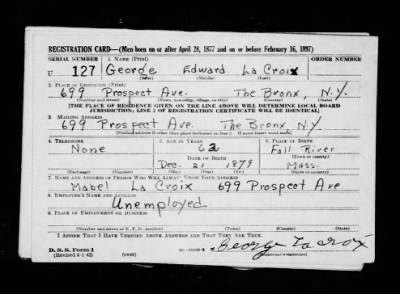 REGISTRATION CARD—(Men born on or after April 28, 1877 and on or before February 16, 1897)
SERIAL NUMBER 1. NAME (Print) ORDER NUMBER
U 127 George Edward La Croix
(First) (Middle) (Last)
2. PLACE OF RESIDENCE (Print)
699 Prospect Ave. The Bronx, N.Y.
(Number and street) (Town, township, village, or city) (County) (State)
[THE PLACE OF RESIDENCE GIVEN ON THE LINE ABOVE WILL DETERMINE LOCAL BOARD
JURISDICTION; LINE 2 OF REGISTRATION CERTIFICATE WILL BE IDENTICAL]
3. MAILING ADDRESS
699 Prospect Ave. The Bronx N.Y.
[Mailing address if other than place indicated on line 2. If same insert word same]
4. TELEPHONE 5. AGE IN YEARS 6. PLACE OF BIRTH
None 62 Fall River
DATE OF BIRTH (Town or county)
Dec. 21 1879 Mass.
(Mo.) (Day) (Yr.) (State or country)
7. NAME AND ADDRESS OF PERSON WHO WILL ALWAYS KNOW YOUR ADDRESS
Mabel La Croix 699 Prospect Ave
8. EMPLOYER'S NAME AND ADDRESS
Unemployed.
9. PLACE OF EMPLOYMENT OR BUSINESS
(Number and street or R. F. D. number) (Town) (County) (State)
I AFFIRM THAT I HAVE VERIFIED ABOVE ANSWERS AND THAT THEY ARE TRUE.
D. S. S. Form 1 George LaCroix